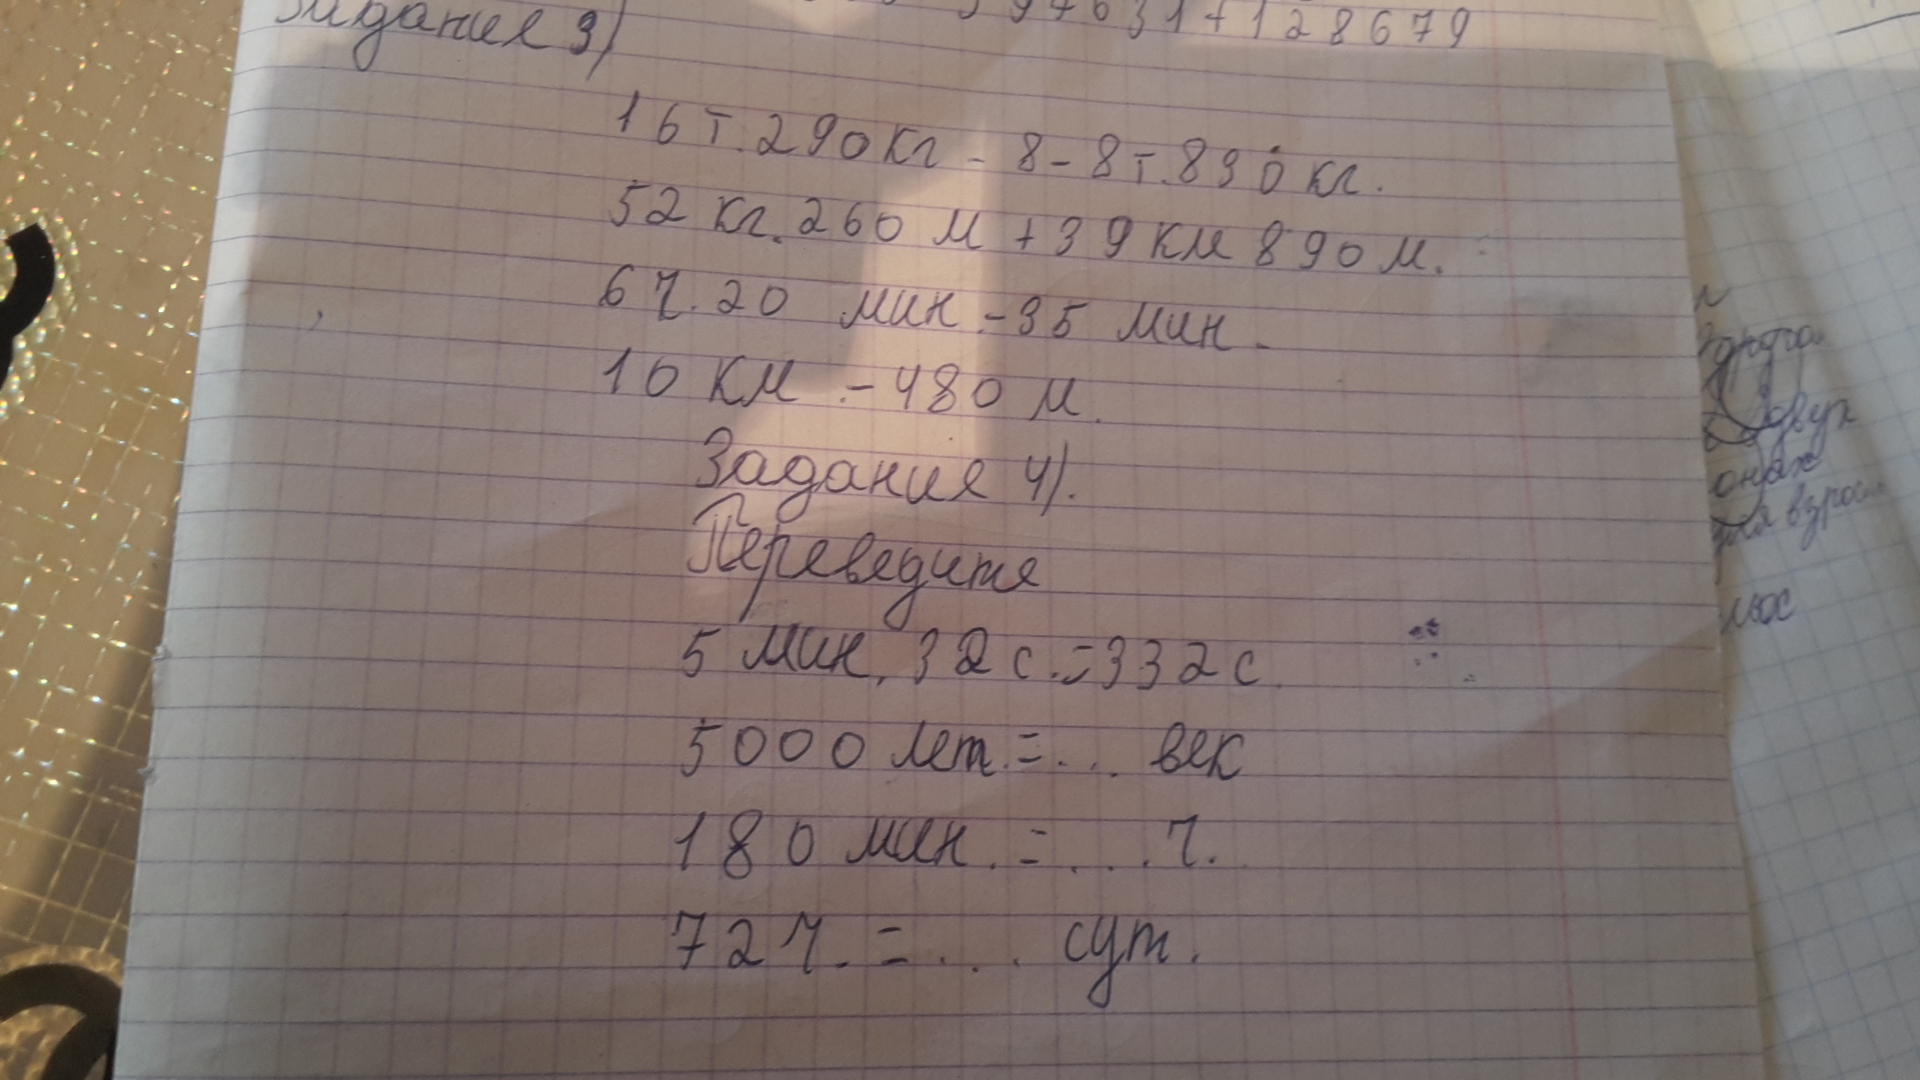 Задание 3)
31+128679
16 т. 290 кг - 8 - 8 т. 890 кг.
52 кг. 260 м + 39 км 890 м.
6 ч. 20 мин - 35 мин.
10 км - 480 м.
Задания 4).
Переведите
5 мин. 32 с. = 332 с.
5000 лет. = ... век
180 мин. = ... ч.
72 ч. = ... сут.